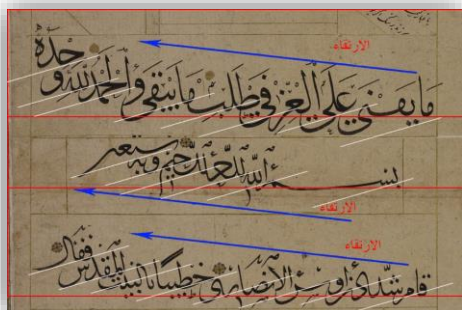 الارتقاء
ما يفنى على العز في طلب ما يبقى والحمد لله وحده
بسم الله وبه نستعين
الارتقاء
الارتقاء
قام شداد بن اوس الانصاري خطيبا بالبيت المقدس فقال